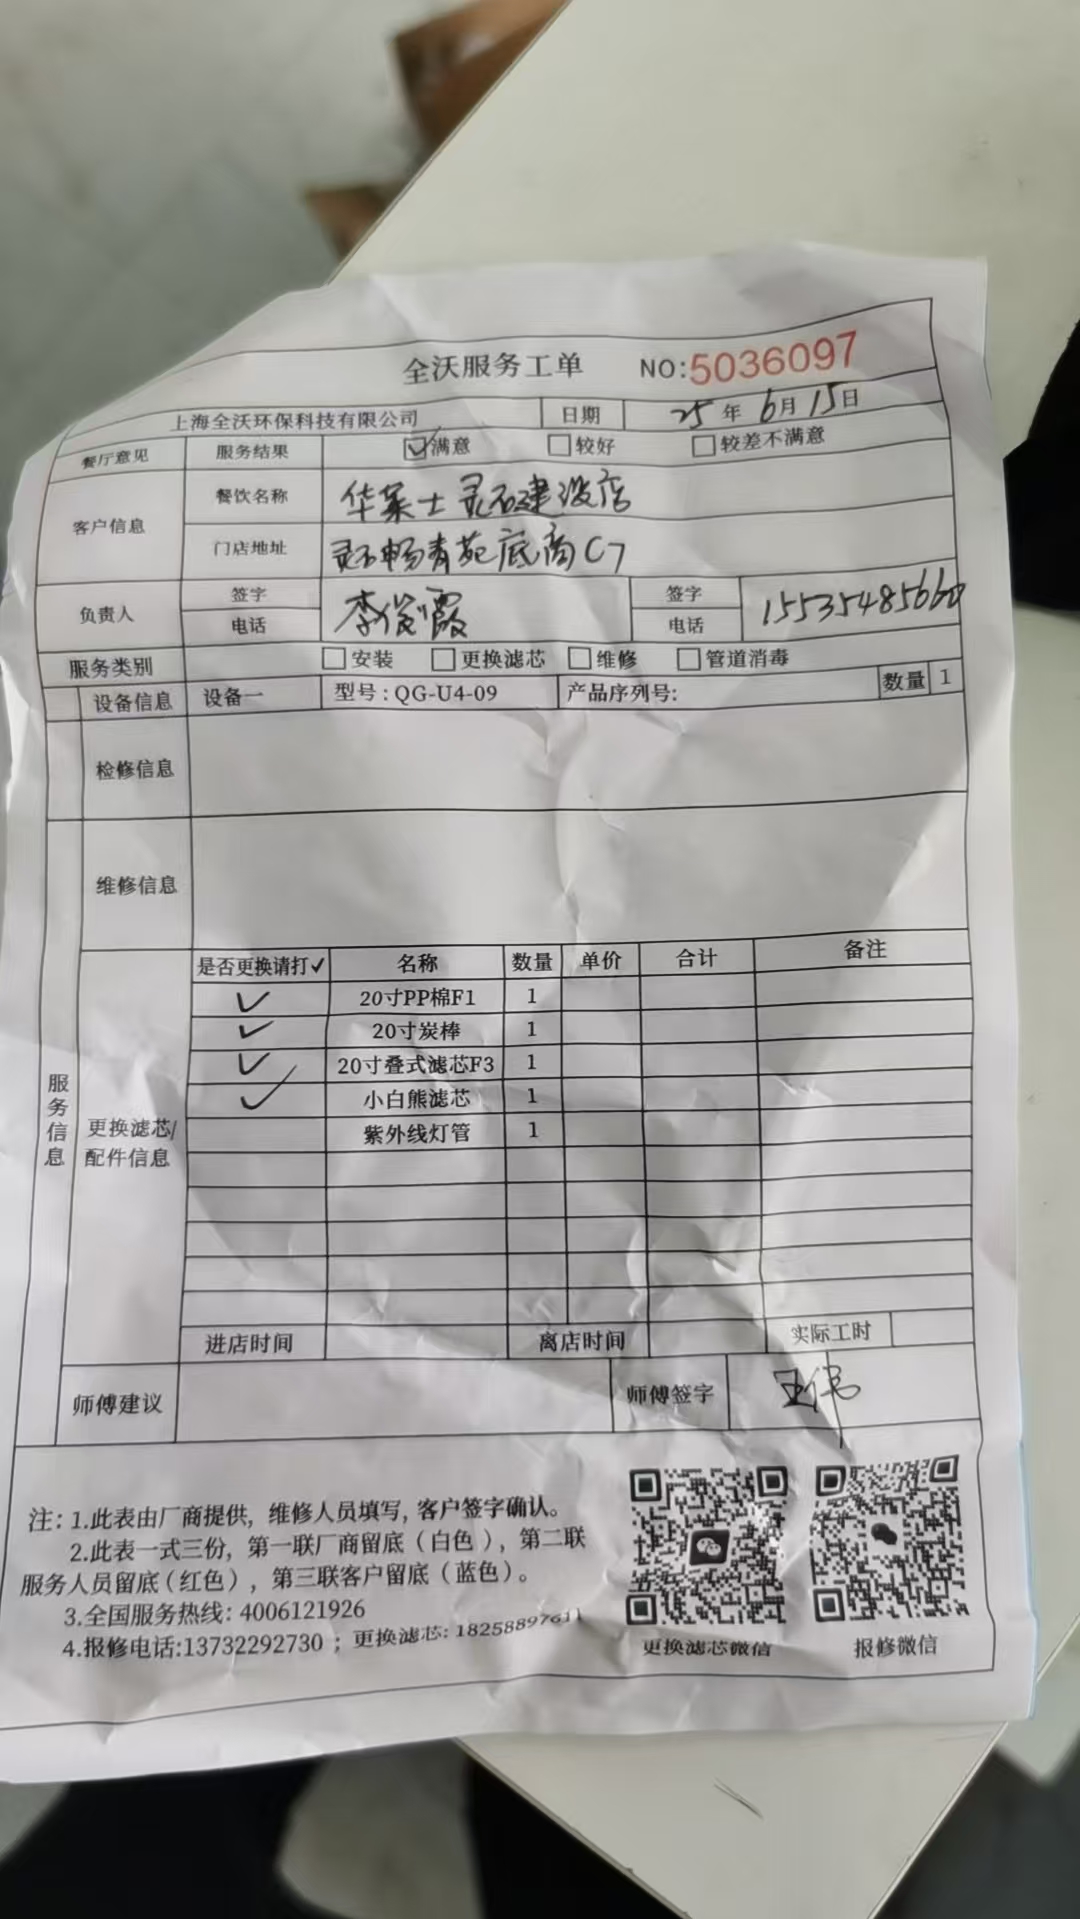 全沃服务工单 NO:5036097
上海全沃环保科技有限公司 日期 25年6月15日
餐厅意见 服务结果 ☑满意 □较好 □较差不满意
客户信息 餐饮名称 华莱士灵石建设店
门店地址 灵石畅青苑底商C7
负责人 签字 电话 李俊霞 签字 电话 15535485660
服务类别 □安装 □更换滤芯 □维修 □管道消毒
设备信息 设备一 型号:QG-U4-09 产品序列号: 数量 1
检修信息
维修信息
服务信息
更换滤芯/配件信息
是否更换请打✓ 名称 数量 单价 合计 备注
✓ 20寸PP棉F1 1
✓ 20寸炭棒 1
✓ 20寸叠式滤芯F3 1
✓ 小白熊滤芯 1
紫外线灯管 1
进店时间 离店时间 实际工时
师傅建议 师傅签字 王伟
注: 1.此表由厂商提供, 维修人员填写, 客户签字确认。
2.此表一式三份, 第一联厂商留底（白色）, 第二联
服务人员留底（红色）, 第三联客户留底（蓝色）。
3.全国服务热线: 4006121926
4.报修电话:13732292730 ; 更换滤芯: 18258897611
更换滤芯微信 报修微信